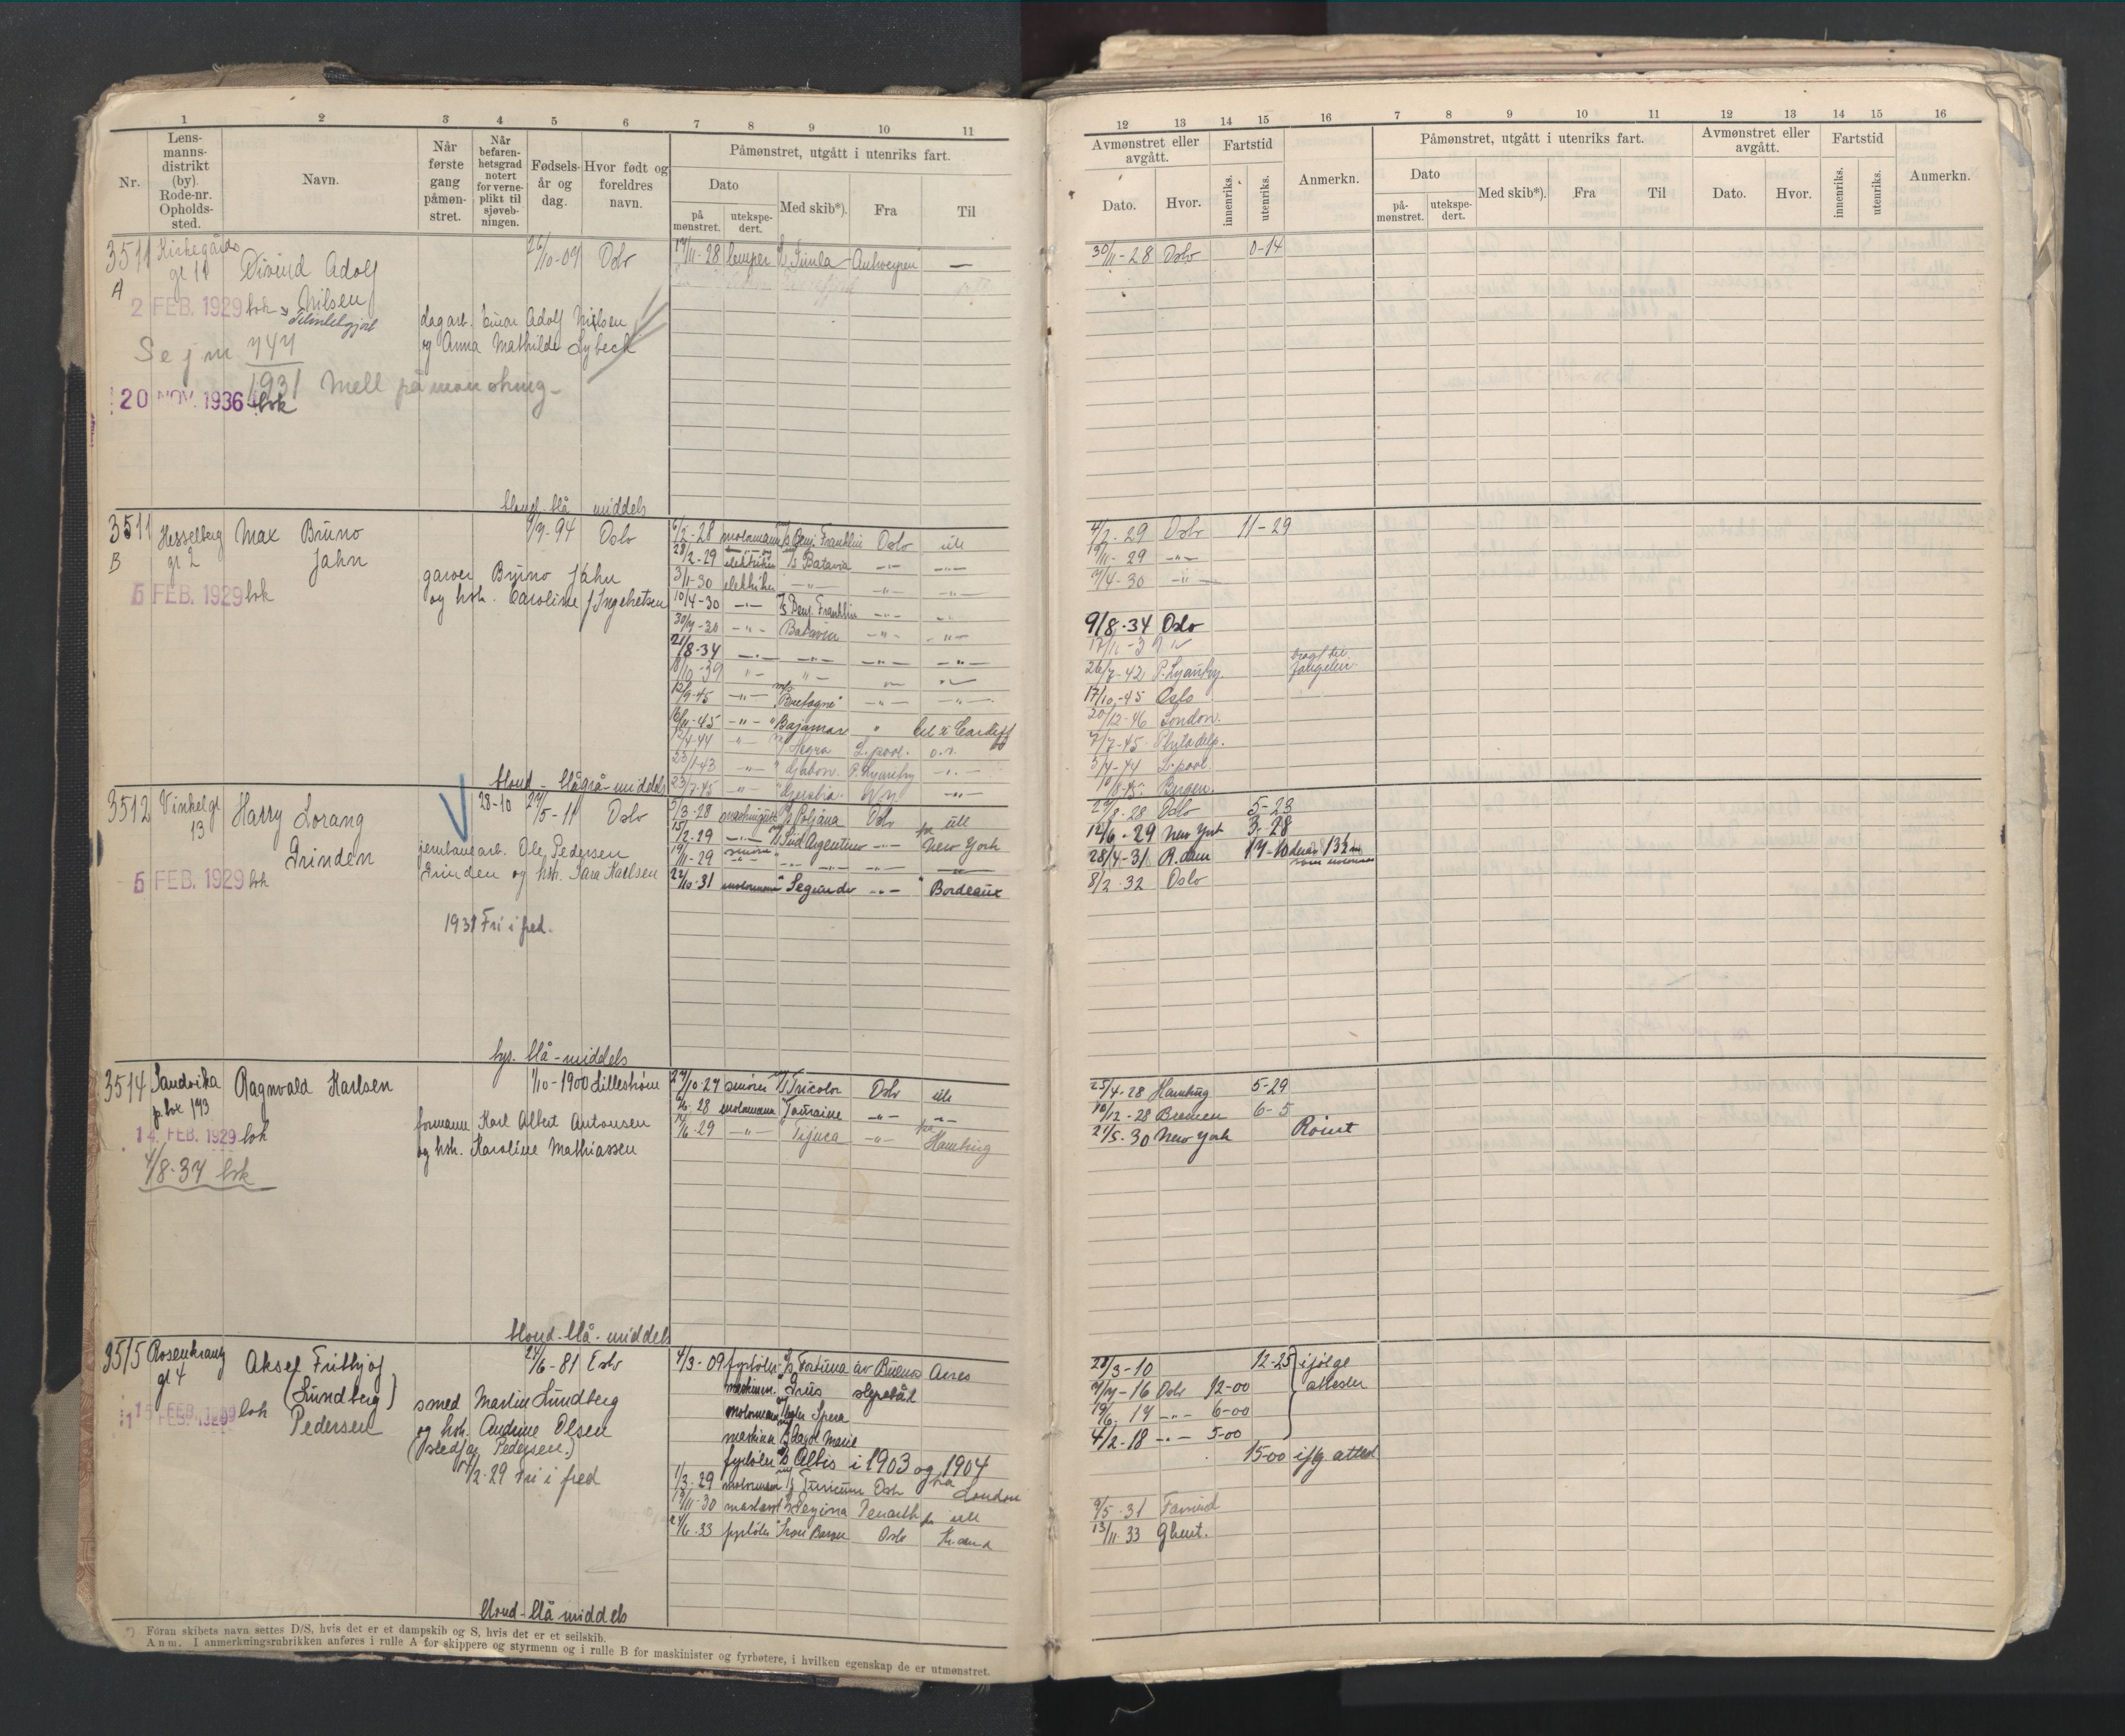 1 2 3 4 5 6 7 8 9 10 11
Nr.
Lens-
manns-
distrikt
(by).
Rode-nr.
Opholds-
sted.
Navn.
Når
første
gang
påmøn-
stret.
Når
befaren-
hetsgrad
notert
for verne-
plikt til
sjøveb-
ningen.
Fødsels-
år og
dag.
Hvor født og
foreldres
navn.
Påmønstret, utgått i utenriks fart.
Dato
på
mønstret.
utekspe-
dert.
Med skib*).
Fra
Til
3511 Kirkegårds 26/10-09 Oslo 17/11-28 lemper Antwerpen —
A gt 11 Øivind Adolf
Nilsen
2 FEB. 1929 bok
dagarb. Einar Adolf Nilsen
og Anna Mathilde Lybeck
Sejm 747
1931 Mell påmønstring
20 NOV. 1936 bok
blond - blå middels
3511 Hesselberg Max Bruno 9/9-94 Oslo 6/2-28 motormann Benj. Franklin Oslo ute
B gt 2 Jahn 28/2-29 elektriker Batavia —"— —"—
garver Bruno Jahn 3/11-30 elektriker —"— —"— —"—
5 FEB. 1929 bok og hstr. Caroline f Ingebretsen 10/4-30 —"— Benj. Franklin —"— —"—
30/7-30 —"— Batavia —"— —"—
21/8-34 —"— —"— —"— —"—
18/10-39 —"— —"—
12/9-45 —"— "Bretagne" —"— —"—
16/11-45 —"— "Bajamar " til Cardiff
12/4-44 —"— Hegra L.pool.
23/1-43 —"— " Gabon. —"—
23/7-45 —"— —"—
blond - blågrå - middels
3512 Vinkelgt Harry Lorang 28-10 29/5-11 Oslo 3/3-28 Poljana Oslo ute
13 Grinden 15/2-29 —"— Sud Argentino —"— New York
jernbanearb. Ole Pedersen 19/11-29
5 FEB. 1929 bok Grinden og hstr. Sara Karlsen 22/10-31 motormann " Segundo —"— " Bordeaux
1931 Fri i fred.
lys. blå - middels
3514 Sandvika Ragnvald Karlsen 1/10-1900 Lillestrøm 27/10-27 smører Tricolor Oslo ute
p.box 193 6/6-28 motormann Touraine —"— —"—
formann Karl Albert Antonsen 14/6-29 —"— Tijuca —"— Hamburg
14. FEB. 1929 bok og hstr. Karoline Mathiassen
4/8-37 bok
blond - blå - middels
3515 Rosenkrantz Aksel Frithjof 24/6-81 Oslo 4/3-09 fyrbøter Fortuna av Buenos Aires
gt 4 (Lundberg) Grus slepebåt
smed Martin Lundberg motormann Spera
15 FEB. 1929 bok Pedersen og hstr. Andrine Olsen Dagot Marie
(Pedersen.) fyrbøter Albis i 1903 og 1904
/2-29 Fri i fred 1/3-29 motormann Turicum Oslo fra London
13/11-30 Regina Penarth ute
24/6-33 fyrbøter Oslo
blond - blå middels
Foran skibets navn settes D/S, hvis det er et dampskib og S, hvis det er et seilskib.
Anm. I anmerkningsrubrikken anføres i rulle A for skippere og styrmenn og i rulle B for maskinister og fyrbøtere, i hvilken egenskap de er utmønstret.
12 13 14 15 16 7 8 9 10 11 12 13 14 15 16
Avmønstret eller
avgått.
Dato.
Hvor.
Fartstid
innenriks.
utenriks.
Anmerkn.
Påmønstret, utgått i utenriks fart.
Dato
på-
mønstret.
utekspe-
dert.
Med skib*).
Fra
Til
Avmønstret eller
avgått.
Dato.
Hvor.
Fartstid
innenriks.
utenriks.
Anmerkn.
30/11-28 Oslo 0-14
4/2-29 Oslo 11-29
19/11-29 —"—
9/4-30 —"—
9/8-34 Oslo
17/11-39
26/7-42 P. Lyautey.
17/10-45 Oslo
20/12-46 London.
7/7-45 Philadelp.
3/4-44 L.pool
10/8-45. Bergen.
27/8-28 Oslo 5-23
12/6-29 New York 3-28
28/4-31 R.dam 17-10
8/2-32 Oslo
25/4-28 Hamburg 5-29
10/12-28 Bremen 6-5
21/5-30 New York Rømt
28/3-10 12-25 ifølge
9/7-16 Oslo 12-00 attester
19/6-17 —"— 6-00
4/2-18 —"— 5-00
15-00 iflg attest
9/5-31
13/11-33 Ghent.